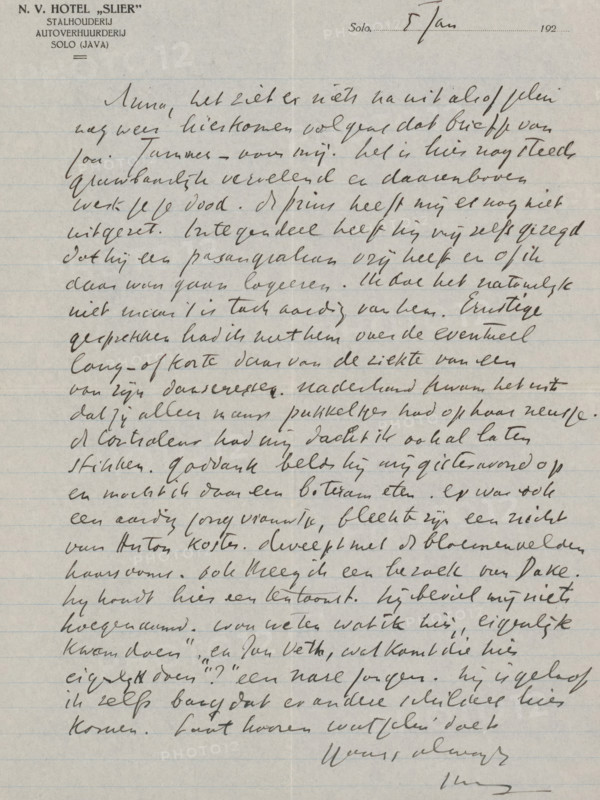 N. V. HOTEL „SLIER"
STALHOUDERIJ
AUTOVERHUURDERIJ
SOLO (JAVA)
Solo, 5 Jan 192
Anna, het ziet er niets na uit alsof jelui
nog weer hierkomen volgens dat briefje van
Jan. Jammer – voor mij. het is hier nog steeds
gruwbaarlijk vervelend en daarenboven
werk je je dood. de prins heeft mij er nog niet
uitgezet. Integendeel heeft hij mij zelfs gezegd
dat hij een pasangrahan vrij heeft en of ik
daar wou gaan logeeren. Ik doe het natuurlijk
niet maar 't is toch aardig van hem. Ernstige
gesprekken had ik met hem over de eventueel
lang – of korte duur van de ziekte van een
van zijn danseressen. naderhand kwam het uit
dat zij alleen maar pukkeltjes had op haar neusje.
de Controleur had mij dacht ik ook al laten
stikken. Goddank belde hij mij gisteravond op
en mocht ik daar een boteram eten. er was ook
een aardig jong vrouwtje, bleekt zijn een nicht
van Anton Koster. dweept met de bloemenvelden
haars ooms. ook kreeg ik een bezoek van Dake.
hij houdt hier een tentoonst. hij beviel mij niets
hoegenaamd. wou weten wat ik hier „eigenlijk
kwam doen" „en Jan Veth, wat komt die hier
eigenlijk doen"?" een nare jongen. hij is geloof
ik zelfs bang dat er andere schilders hier
komen. Laat hooren wat jelui doet
Yours always